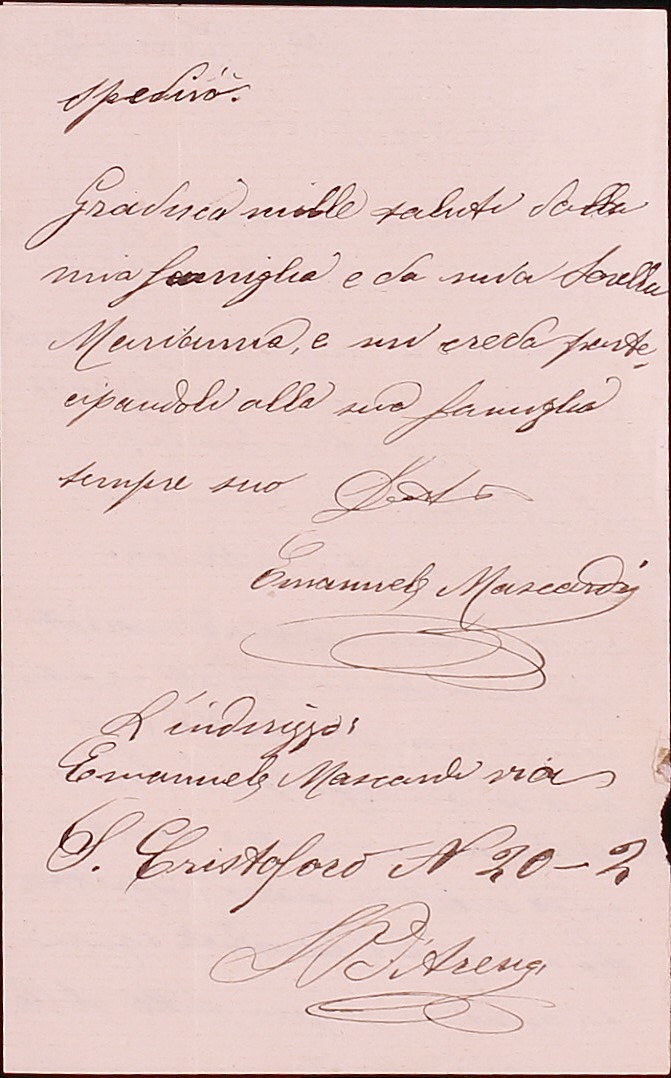 spedirò.
Gradisca mille saluti dalla
mia famiglia e da mia Sorella
Marianna, e mi creda parte-
cipandoli alla sua famiglia
sempre suo
Emanuele Mascardi
L'inderizzo:
Emanuele Mascardi via
S. Cristoforo N 20-2
S P d'Arena